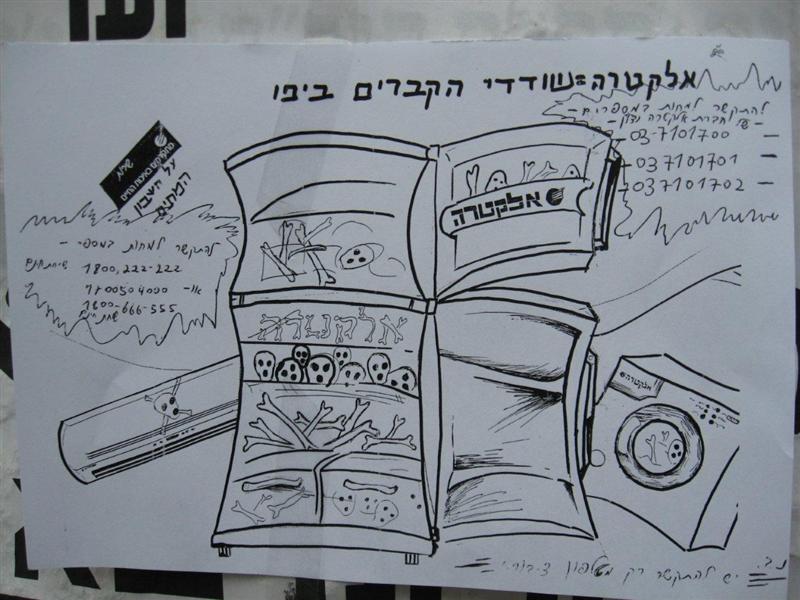 אלקטרה=שודדי הקברים ביפו
להתקשר למחות במספרים -
- של חברת אלקטרה נדל"ן -
03-7101700 -
037101701 -
037101702 -
אלקטרה
שירות
על חשבון
המתים
להתקשר למחות במספר -
1800,222-222 שיחת חינם
או- 1700504000
1800-666-555
שיחת חינם
אלקטרה
אלקטרה
נ.ב. יש להתקשר רק מטלפון ציבורי